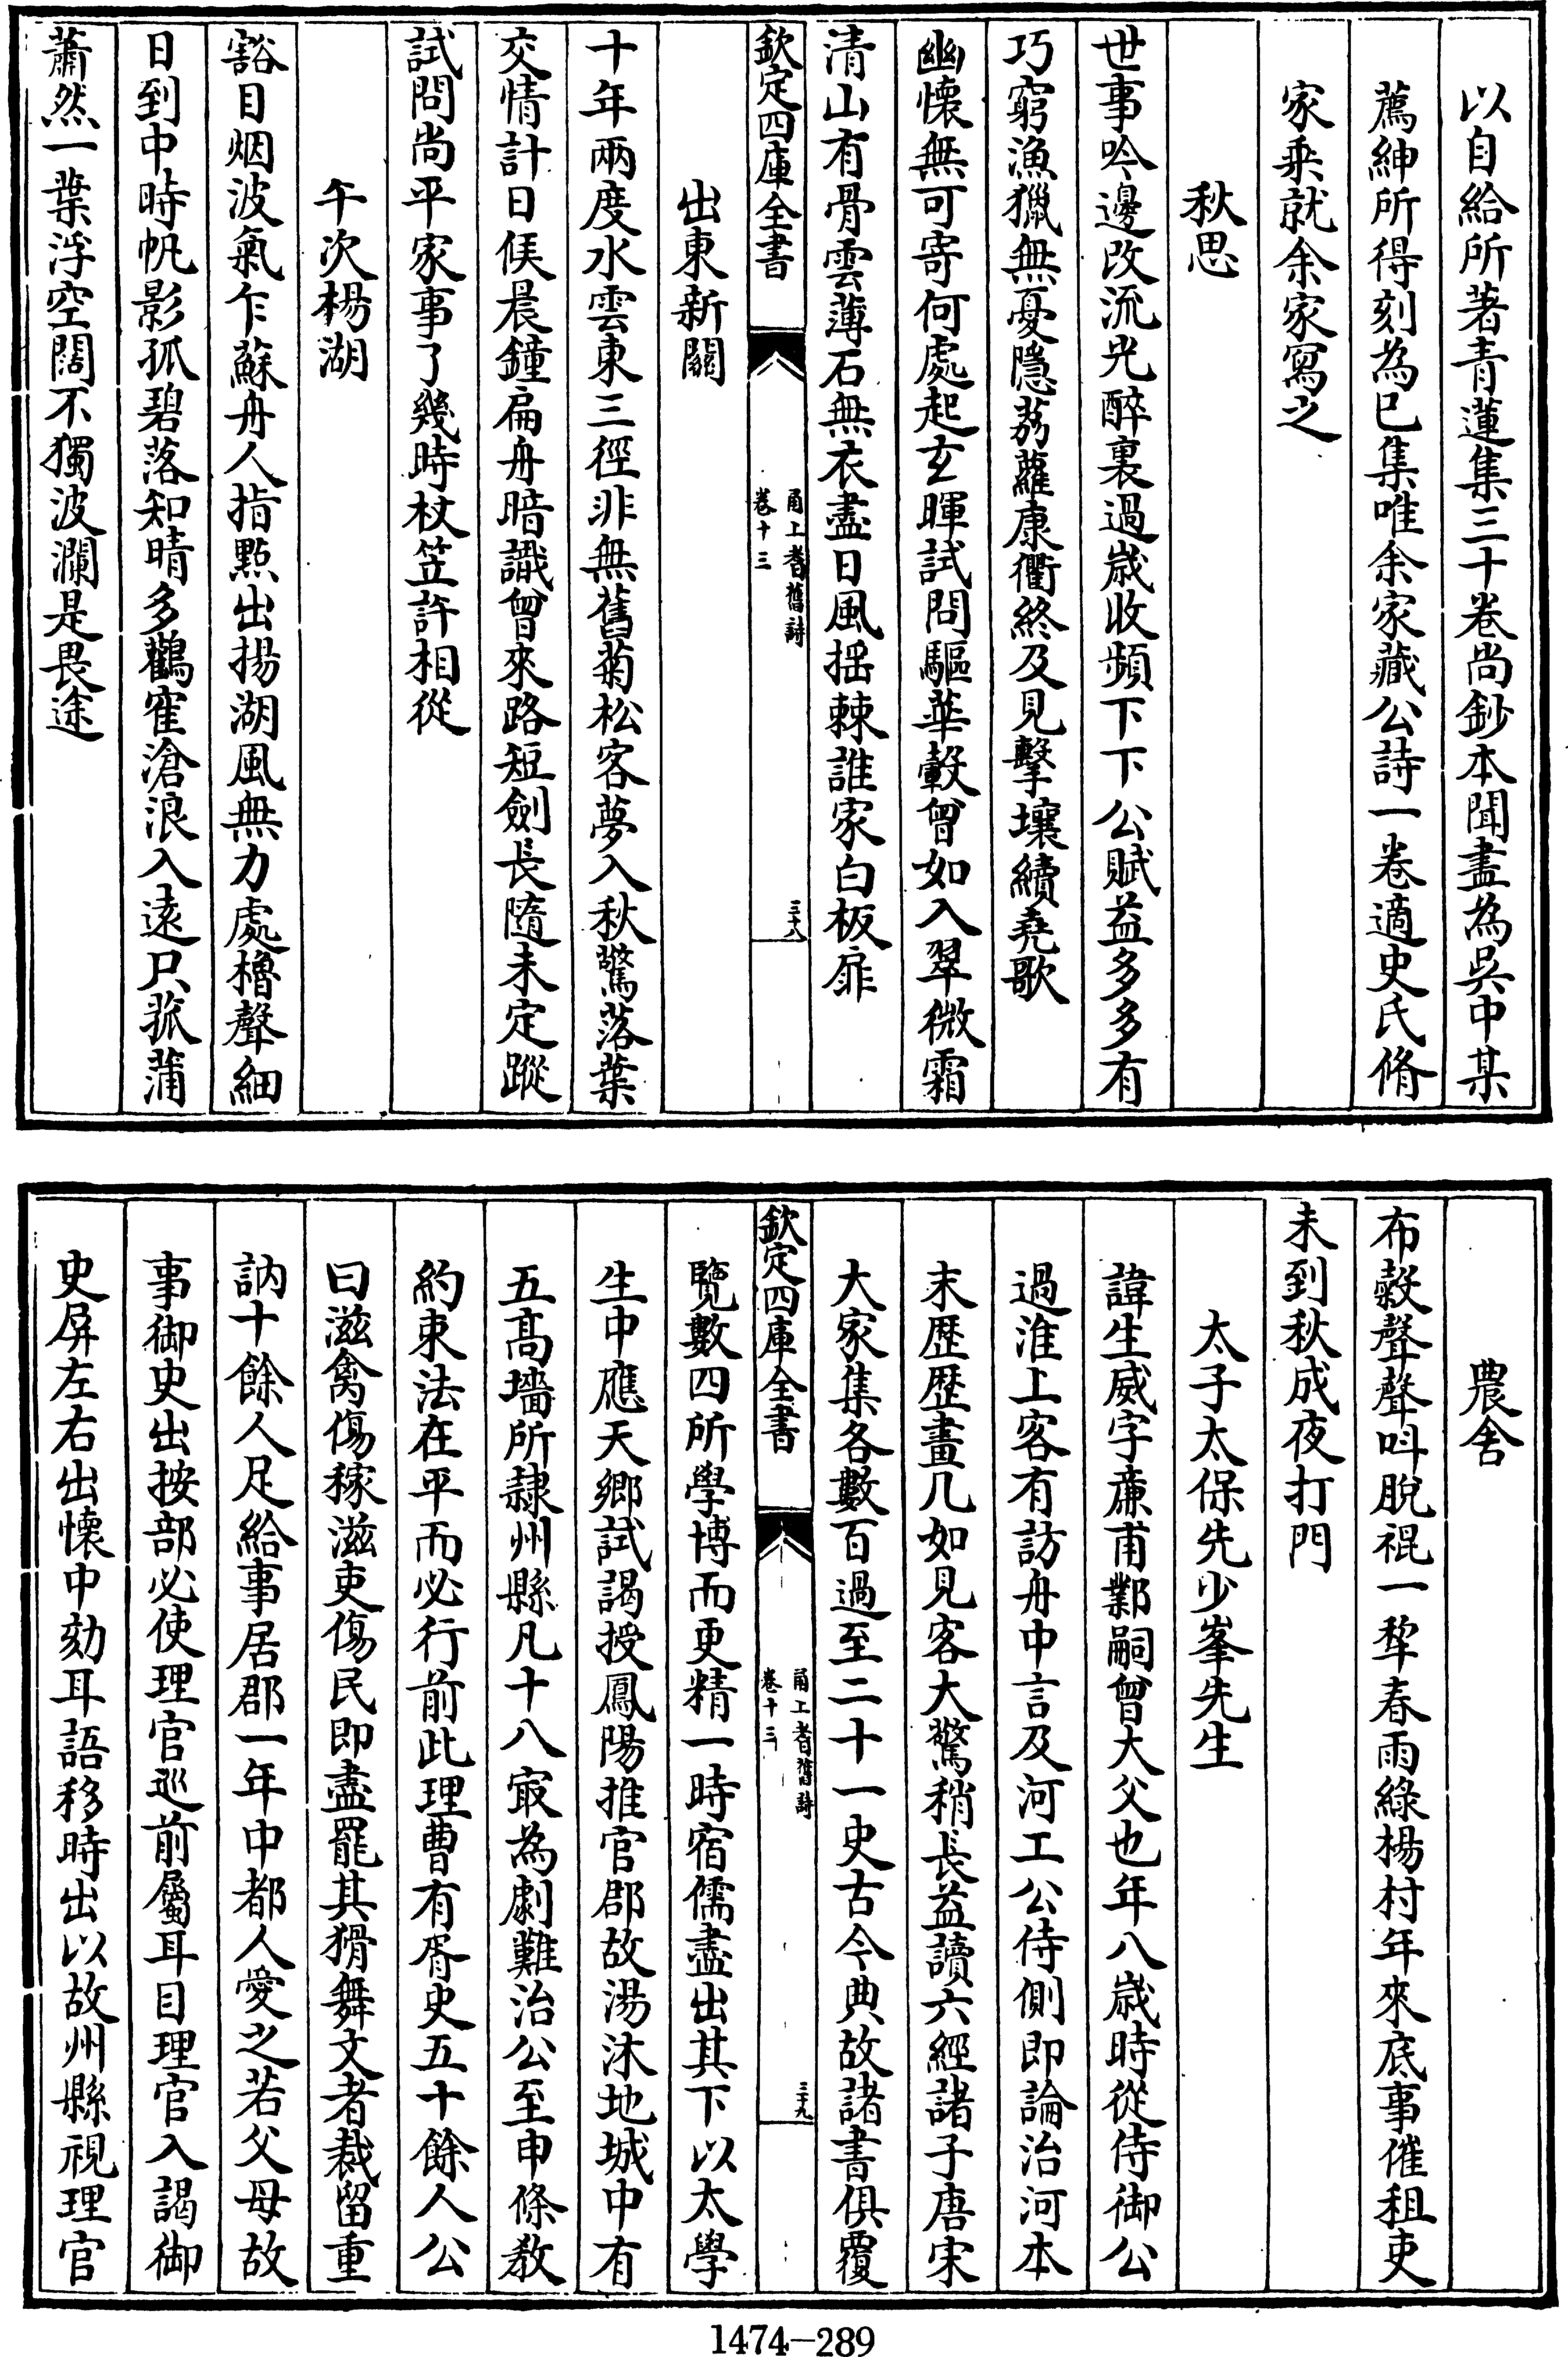 以自給所著青蓮集三十卷尚鈔本聞盡為吳中某
薦紳所得刻為已集唯余家藏公詩一卷適史氏脩
家乘就余家寫之
秋思
世事吟邊改流光醉裏過歲收頻下下公賦益多多有
巧窮漁獵無憂隱荔蘿康衢終及見擊壤續堯歌
幽懷無可寄何處起玄暉試問驅華轂曾如入翠微霜
清山有骨雲薄石無衣盡日風揺棘誰家白板扉
欽定四庫全書
甬上耆舊詩
卷十三
三十八
出東新關
十年兩度水雲東三徑非無舊菊松客夢入秋驚落葉
交情計日候晨鐘扁舟暗識曾來路短劍長隨未定蹤
試問尚平家事了幾時杖笠許相從
午次楊湖
豁目烟波氣乍蘇舟人指點出揚湖風無力處櫓聲細
日到中時帆影孤碧落知晴多鸛寉滄浪入遠只菰蒲
蕭然一葉浮空闊不獨波瀾是畏途
農舍
布穀聲聲呌脫裩一犂春雨綠楊村年來底事催租吏
未到秋成夜打門
太子太保先少峯先生
諱生威字亷甫鄴嗣曾大父也年八歲時從侍御公
過淮上客有訪舟中言及河工公侍側即論治河本
末歴歴畫几如見客大驚稍長益讀六經諸子唐宋
大家集各數百過至二十一史古今典故諸書俱覆
欽定四庫全書
甬上耆舊詩
卷十三
三十九
覽數四所學博而更精一時宿儒盡出其下以太學
生中應天鄉試謁授鳳陽推官郡故湯沐地城中有
五髙墻所隷州縣凡十八㝡為劇難治公至申條教
約束法在平而必行前此理曹有胥史五十餘人公
曰滋禽傷稼滋吏傷民即盡罷其猾舞文者裁留重
訥十餘人足給事居郡一年中都人愛之若父母故
事御史出按部必使理官廵前屬耳目理官入謁御
史屏左右出懷中劾耳語移時出以故州縣視理官
1474-289